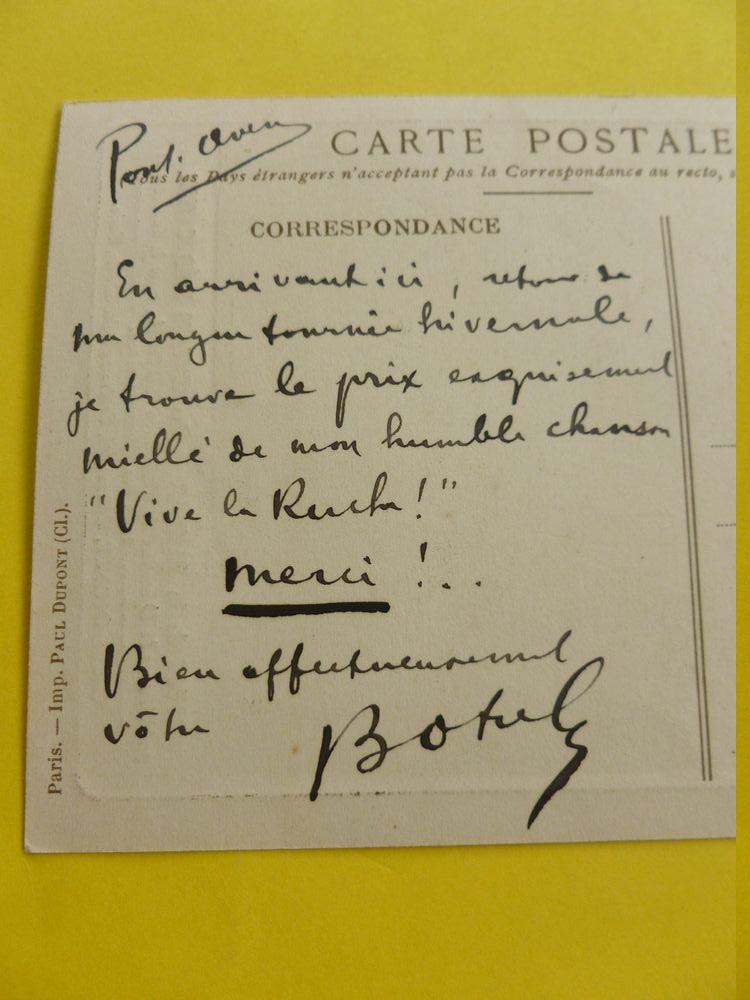 Pont. Aven
CARTE POSTALE
Tous les Pays étrangers n'acceptant pas la Correspondance au recto,
CORRESPONDANCE
En arrivant ici, retour de
ma longue tournée hivernale,
je trouve le prix exquisement
miellé de mon humble chanson
"Vive la Ruche!"
merci !..
Bien affectueusement
vôtre
Botrel
Paris. — Imp. PAUL DUPONT (Cl.).